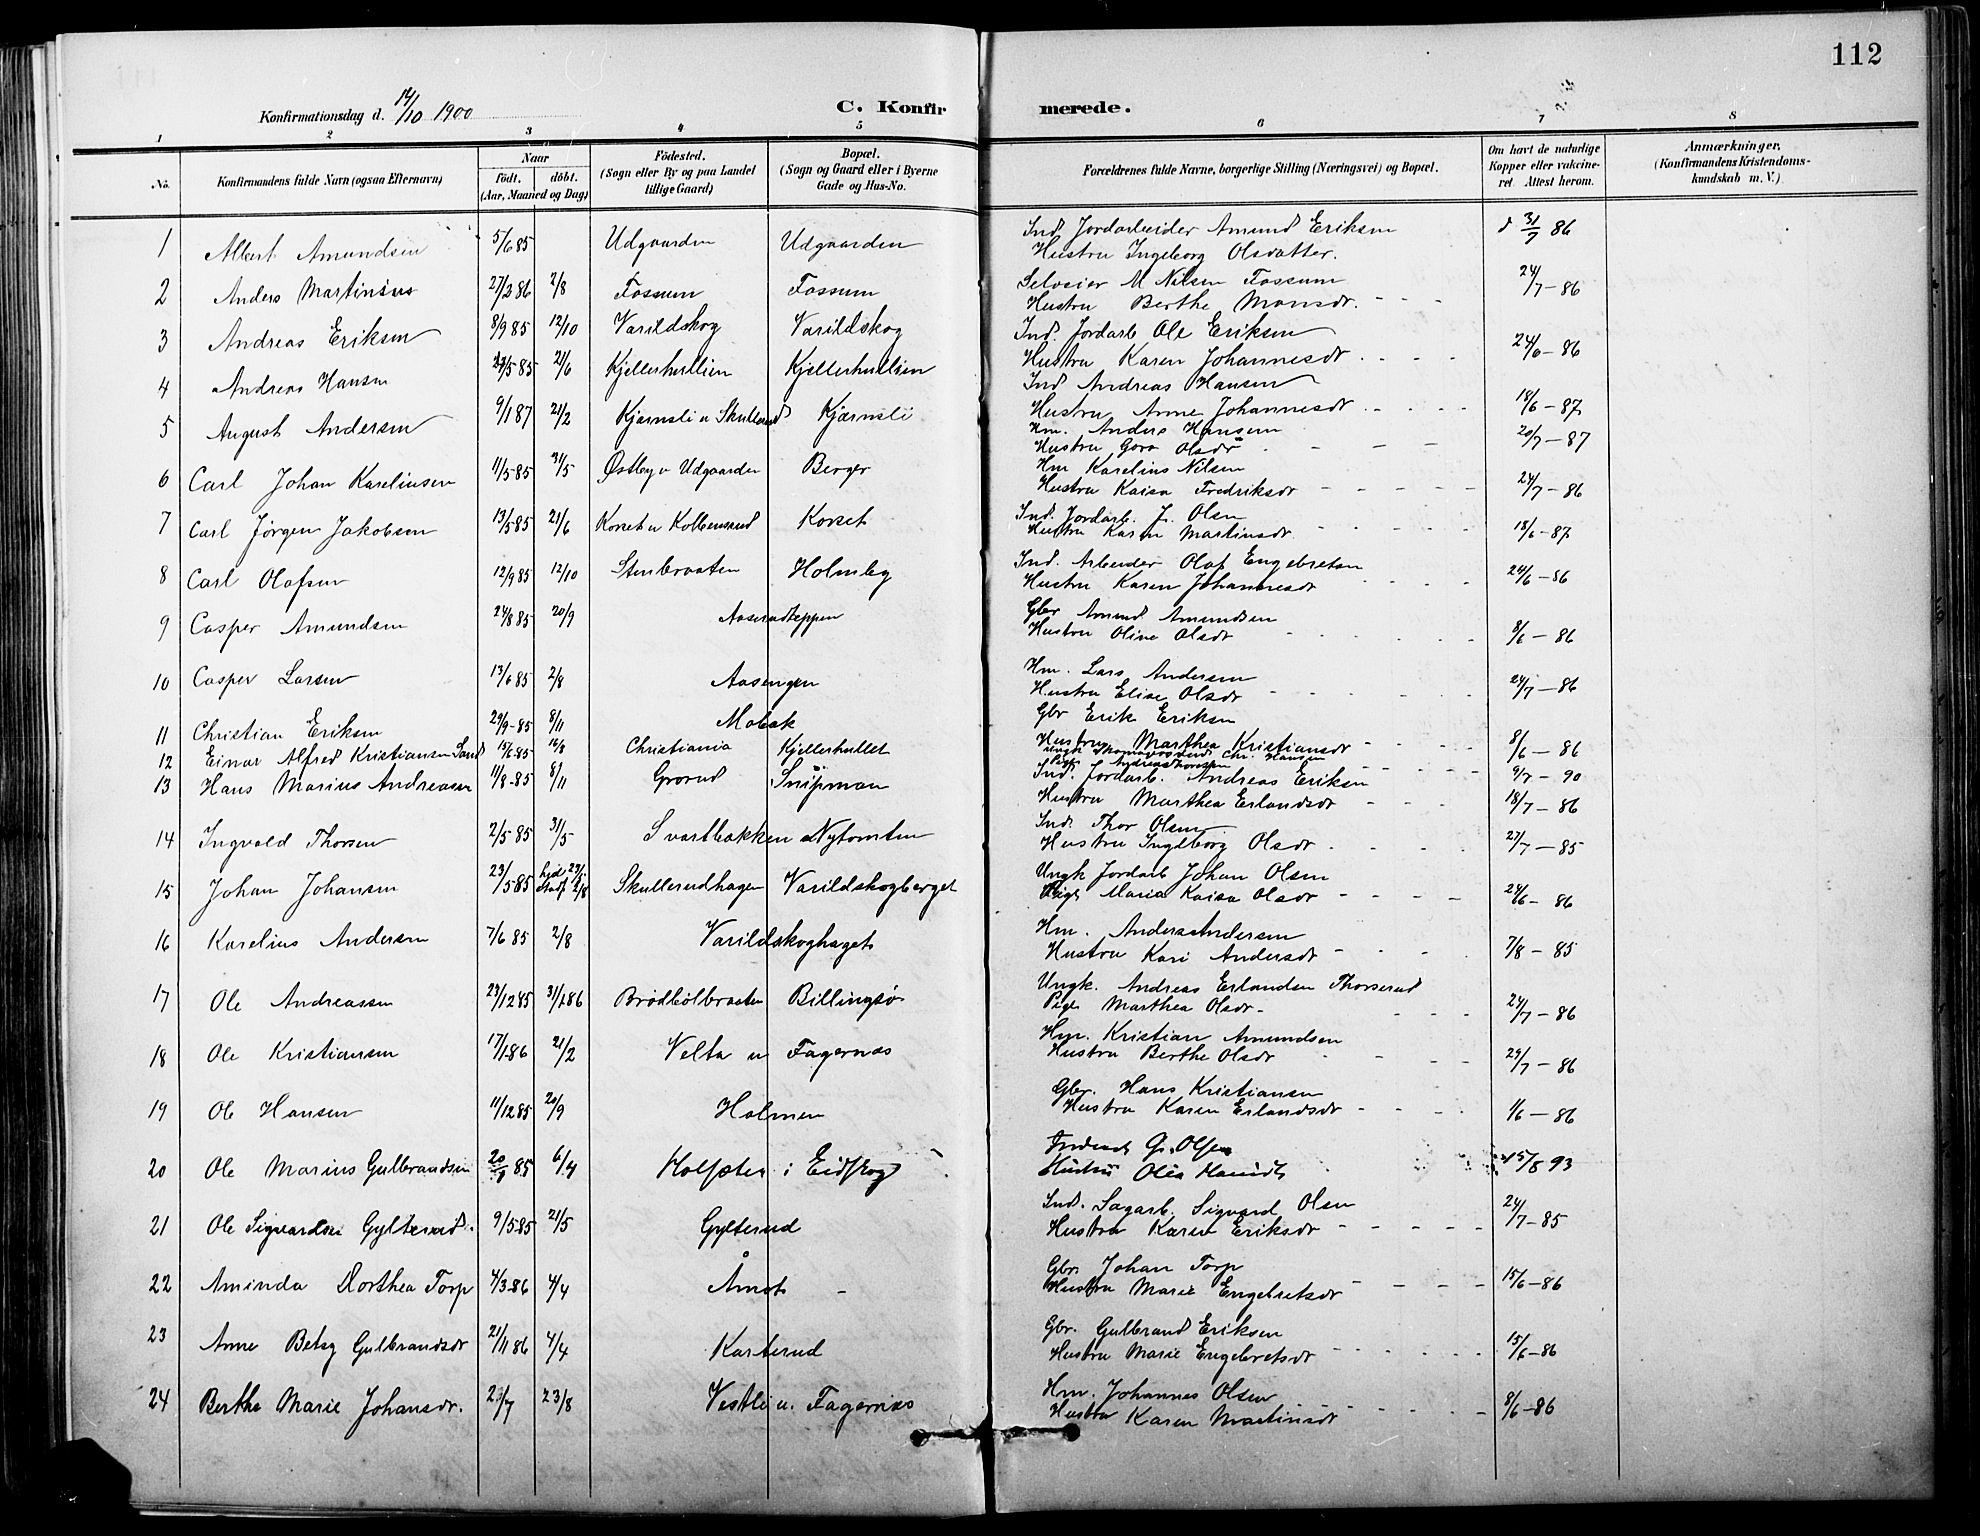 112
Konfirmationsdag d. 14/10 1900
C. Konfirmerede.
1 2 3 4 5 6 7 8
No. Konfirmandens fulde Navn (ogsaa Efternavn)
Naar født. døbt. (Aar, Maaned og Dag)
Fødested. (Sogn eller By og paa Landet tillige Gaard)
Bopæl. (Sogn og Gaard eller i Byerne Gade og Hus-No.
Forældrenes fulde Navne, borgerlige Stilling (Næringsvei) og Bopæl.
Om havt de naturlige Kopper eller vaccineret. Attest herom.
Anmærkninger. (Konfirmandens Kristendomskundskab m. V.)
1 Albert Amundsen 5/6 85 Udgaarden Udgaarden Ind. Jordarbeider Amund Eriksen 31/7 86
Hustru Ingeborg Olsdatter.
2 Anders Martinius 2/8 Fossum Fossum Selveier M Nilsen Fossum 24/7-86
Hustru Berthe Monsdr.
3 Andreas Eriksen 8/9 85 12/10 Varildskog Varildskog Ind. Jordarb Ole Eriksen 24/6-86
Hustru Karen Johannesdr
4 Andreas Hansen 21/6 Kjellerhullien Kjellerhullien Ind Andreas Hansen 18/6-87
Hustru Anne Johannesdr
5 August Andersen 9/1 87 21/2 Kjærnsli u Skullerud Kjærnsli Hm. Anders Hansen 20/7-87
Hustru Goro Olsdr
6 Carl Johan Karelinsen 11/5-85 31/5 Østby u Udgaarden Berger Hm Karelius Nilsen 24/7-86
Hustru Kaisa Fredriksdr
7 Carl Jørgen Jakobsen 13/5 85 21/6 Korset u Kolbensrud Korset Ind. Jordarb. J. Olsen 18/6-87
Hustru Karen Martinsdr
8 Carl Olafsen 12/9 85 12/10 Stenbraaten Holmby Ind. Arbeider Olaf Engebretsen 24/6-86
Hustru Karen Johannesdr
9 Casper Amundsen 24/8 85 20/9 Aaserudteppen Gbr Amund Amundsen 8/6-86
Hustru Oline Olsdr
10 Casper Larsen 13/6 85 2/8 Aasengen Hm. Lars Andersen 24/7-86
Hustru Elise Olsdr
11 Christian Eriksen 29/9-85 8/11 Mobak Gbr Erik Eriksen 8/6-86
Hustru Marthea Kristiansdr
12 Einar Alfred Kristiansen Sand Christiania Kjellerhullet Chr. Hansen 9/7-90
13 Hans Marius Andreasen 11/8-85 8/11 Grorud Snipmoen Ind. Jordarb. Andreas Eriksen 18/7-86
Hustru Marthea Erlandsdr
14 Ingvald Thorsen 2/5 85 31/5 Svartbakken Nytomten Ind. Thor Olsen 27/7-85
Hustru Ingeborg Olsdr
15 Johan Johansen 23/5 85 2/8 Skullerudhagen Varildskogberget Ungk Jordarb Johan Olsen 24/6-86
Pige Maria Kaisa Olsdr
16 Karelius Andersen 7/6 85 2/8 Varildskoghaget Hm. Anders Andersen 7/8-85
Hustru Kari Andersdr
17 Ole Andreassen 23/12 85 31/1 86 Brødbølbraaten Billingsø Ungk. Andreas Erlandsen Thorserud 24/7-86
Pige Marthea Olsdr
18 Ole Kristiansen 17/1 86 21/2 Velta u Fagernæs Hm. Kristian Amundsen 29/7-86
Hustru Berthe Olsdr
19 Ole Hansen 11/12 85 20/9 Holmen Gbr. Hans Kristiansen 1/6-86
Hustru Karen Erlandsdr
20 Ole Marius Gulbrandsen 85 Holsæter i Eidskog G. Olsen 15/8 93
Hustru Olea
21 Ole Sigvardsen Gylterud. 9/5 85 21/5 Gylterud Ind. Sagarb. Sigvard Olsen 24/7-85
Hustru Karen Eriksdr
22 Aminda Dorthea Torp 4/3 86 4/4 Åmot Gbr. Johan Torp 15/6-86
Hustru Marie Engebretsdr
23 Anne Betzy Gulbrandsdr 21/11 86 4/4 Karterud Gbr. Gulbrand Eriksen 15/6-86
Hustru Marie Engebretsdr
24 Berthe Marie Johansdr. 23/8 Vestli u. Fagernæs Hm. Johannes Olsen 8/6-86
Hustru Karen Martinsdr